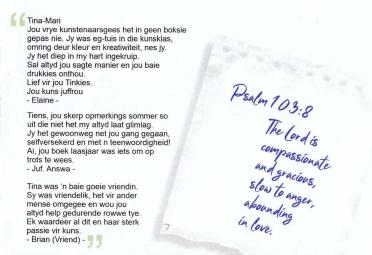 Tina-Mari
Jou vrye kunstenaarsgees het in geen boksie
gepas nie. Jy was eg-tuis in die kunsklas,
omring deur kleur en kreatiwiteit, nes jy.
Jy het diep in my hart ingekruip.
Sal altyd jou sagte manier en jou baie
drukkies onthou.
Lief vir jou Tinkies,
Jou kuns juffrou
- Elaine -
Tiens, jou skerp opmerkings sommer so
uit die niet het my altyd laat glimlag.
Jy het gewoonweg net jou gang gegaan,
selfversekerd en met n teenwoordigheid!
Ai, jou boek laasjaar was iets om op
trots te wees.
- Juf. Answa -
Tina was 'n baie goeie vriendin.
Sy was vriendelik, het vir ander
mense omgegee en wou jou
altyd help gedurende rowwe tye.
Ek waardeer al dit en haar sterk
passie vir kuns.
- Brian (Vriend) -
Psalm 103:8
The Lord is
compassionate
and gracious,
slow to anger,
abounding
in love.